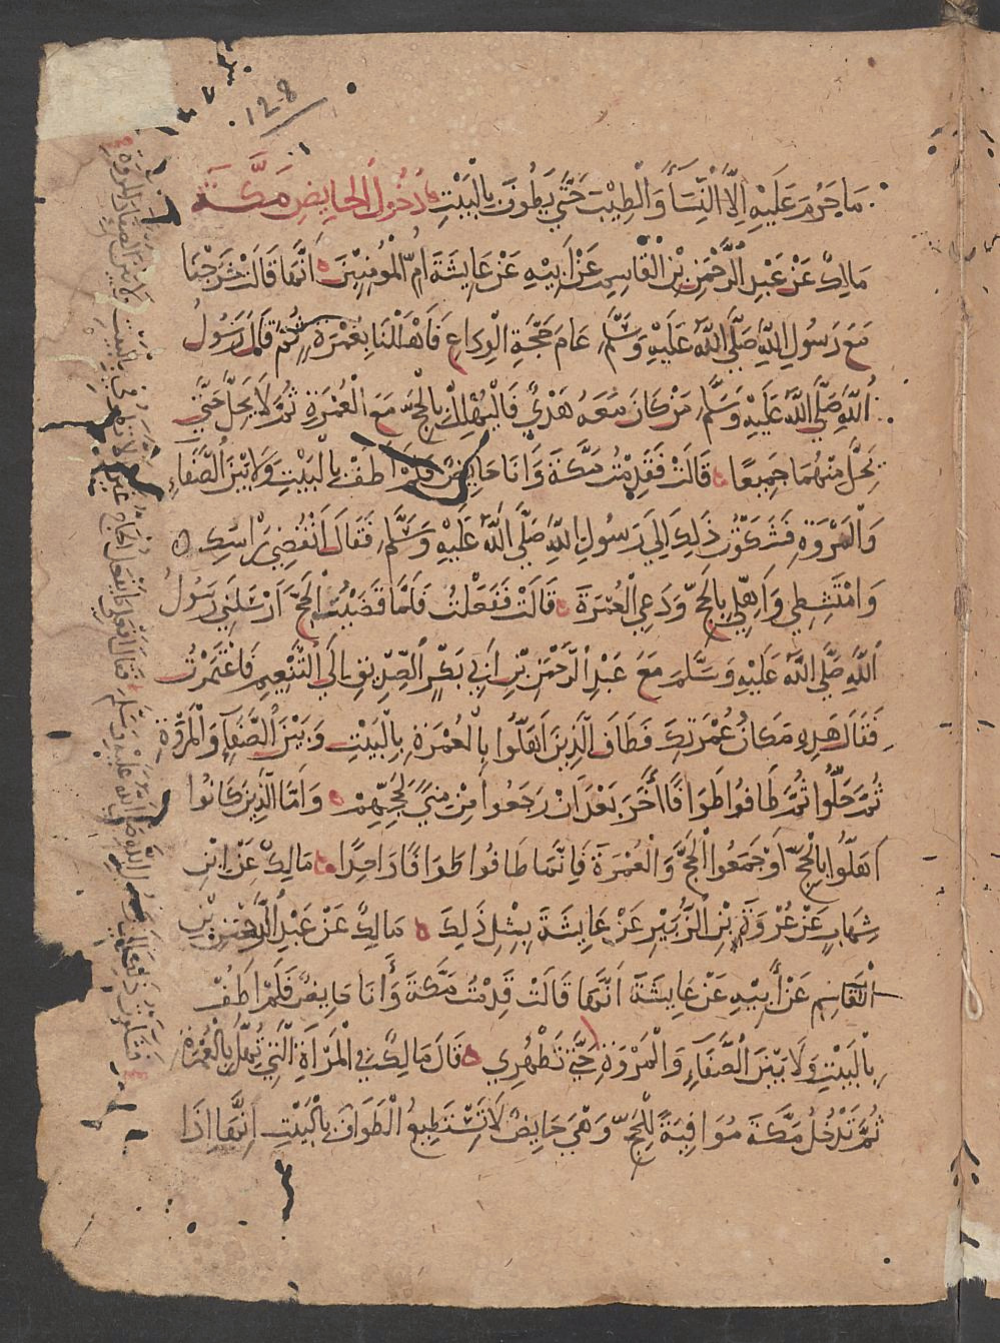 128
مَا حَرُمَ عَلَيْهِ اِلَّا النِّسَاَ وَالْطِيْبَ حَتَّي يَطُوفَ بِالْبَيْتِ دُخُولُ الحايِضِ مَكَّةَ
مَالِكْ عَنْ عَبْدِ الرَّحْمَنِ بْنِ الْقَاسِمِ عَنْ اَبِيْهِ عَنْ عَايِشَةَ اُمِّ الْمُومِنِيْنَ اَنَّهَا قَالَتْ خَرَجْنَا
مَعَ رَسُولِ اللهِ صَلَّي اللهُ عَلَيْهِ وَسَلَّم عَامَ حَجَّةِ الْوِدَاعِ فَاَهْلَلْنَا بِعُمْرَةٍ ثُمَّ قَالَ رَسُولُ
اللهِ صَلَّي اللهُ عَلَيْهِ وَسَلَّم مَنْ كَانَ مَعَهُ هَدْيٌ فَالْيُهْلِلْ بِالْحَجِّ مَعَ الْعُمْرَةِ ثُمَّ لَا يَحِلُّ حَتَّي
يَحِلَّ مِنْهُمَا جَمِيعًا قَالَتْ فَقَدِمْتُ مَكَّةَ وَاَنَا حَايِضٌ فَلَمْ اَطُفْ بِالْبَيْتِ وَلَا بَيْنَ الصَّفَاءِ
وَالْمَرْوَةِ فَشَكَوْتُ ذَلِكَ اِلَي رَسُولِ اللهِ صَلَّي اللهُ عَلَيْهِ وَسَلَّم فَقَالَ اَنْقُضِي رَاْسَكِ
وَامْتَشِطِي وَاَهِلِّي بِالْحَجِّ وَدَعِي الْعُمْرَةَ قَالَتْ فَفَعَلْتُ فَلَمَّا قَضَيْتُ الْحَجَّ اَرْسَلَنِي رَسُولُ
اللهِ صَلَّي اللهُ عَلَيْهِ وَسَلَّمَ مَعَ عَبْدِ الرَّحْمَنِ بْنِ اَبِي بَكْرٍ الصِّدِّيقِ اِلَي التَّنْعِيمِ فَاعْتَمَرْتُ
فَقَالَ هَذِهِ مَكَانُ عُمْرَتِكِ فَطَافَ الَّذِينَ اَهَلُّوا بِالْعُمْرَةِ بِالْبَيْتِ وَبَيْنَ الصَّفَاءِ وَالْمَرْوَةِ
ثُمَّ حَلُّوا ثُمَّ طَافُوا طَوَافًا اخَرَ بَعْدَ اَنْ رَجَعُوا مِنْ مِنًي لِحَجِّهِمْ وَاَمَّا الَّذِينَ كَانُوا
اَهَلُّوا بِالْحَجِّ اَوْ جَمَعُوا الْحَجَّ وَالْعُمْرَةَ فَاِنَّمَا طَافُوا طَوَافًا وَاحِدًا مَالِكْ عَنْ ابْنِ
شِهَابٍ عَنْ عُرْوَةَ بْنِ الزُّبَيْرِ عَنْ عَايِشَةَ بِمِثْلِ ذَلِكَ مَالِكْ عَنْ عَبْدِ الرَّحْمَنِ بْنِ
الْقَاسِمِ عَنْ اَبِيْهِ عَنْ عَايِشَةَ اَنَّهَا قَالَتْ قَدِمْتُ مَكَّةَ وَاَنَا حَايِضٌ فَلَمْ اَطُفْ
بِالْبَيْتِ وَلَا بَيْنَ الصَّفَاءِ وَالْمَرْوَةِ حَتَّي تَطْهُرِي قَالَ مَالِكٌ فِي الْمَرْاَةِ الَّتِي تُهِلُّ بِالْعُمْرَةِ
ثُمَّ تَدْخُلُ مَكَّةَ مُوَافِيَةً لِلْحَجِّ وَهْيَ حَايِضٌ لَا تَسْتَطِيعُ الْطَوَافَ بِالْبَيْتِ اِنَّهَا اِذَا
فَشَكَوْتُ ذَلِكَ اِلَي رَسُولِ اللهِ صَلَّي اللهُ عَلَيْهِ وَسَلَّمَ فَقَالَ افْعَلِي مَا يَفْعَلُ الْحَاجُّ غَيْرَ اَنْ لَا تَطُوفِي بِالْبَيْتِ وَلَا بَيْنَ الصَّفَا وَالْمَرْوَةِ